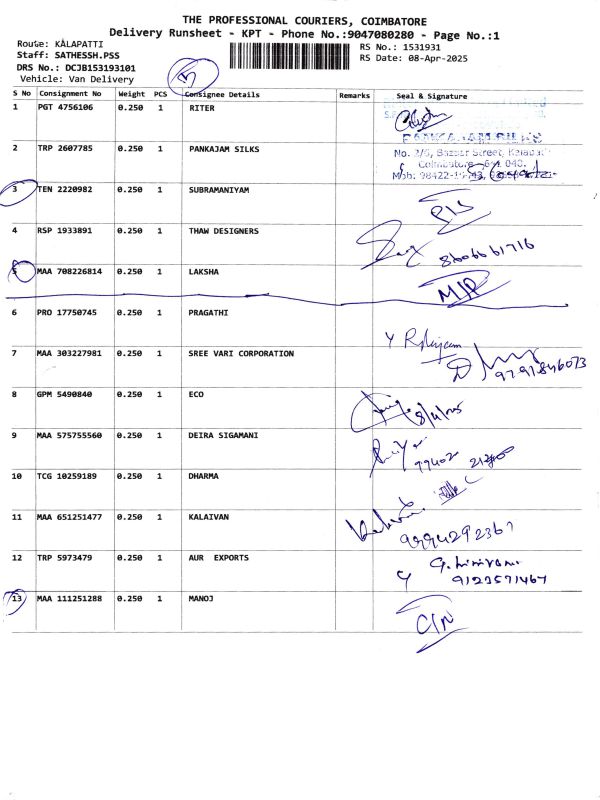 THE PROFESSIONAL COURIERS, COIMBATORE
Delivery Runsheet - KPT - Phone No.:9047080280 - Page No.:1
Route: KALAPATTI
Staff: SATHESSH.PSS
DRS No.: DCJB153193101
Vehicle: Van Delivery
RS No.: 1531931
RS Date: 08-Apr-2025
S No Consignment No Weight PCS Consignee Details Remarks Seal & Signature
1 PGT 4756106 0.250 1 RITER
2 TRP 2607785 0.250 1 PANKAJAM SILKS
PANKAJAM SILKS
No. 2/5, Bazaar Street, Kalapatti
Coimbatore - 641 048.
3 TEN 2220982 0.250 1 SUBRAMANIYAM
4 RSP 1933891 0.250 1 THAW DESIGNERS
8606661716
5 MAA 708226814 0.250 1 LAKSHA
6 PRO 17750745 0.250 1 PRAGATHI
7 MAA 303227981 0.250 1 SREE VARI CORPORATION
9791846073
8 GPM 5490840 0.250 1 ECO
8/4/25
9 MAA 575755560 0.250 1 DEIRA SIGAMANI
10 TCG 10259189 0.250 1 DHARMA
11 MAA 651251477 0.250 1 KALAIVAN
9994292367
12 TRP 5973479 0.250 1 AUR EXPORTS
9123571467
13 MAA 111251288 0.250 1 MANOJ
C/N